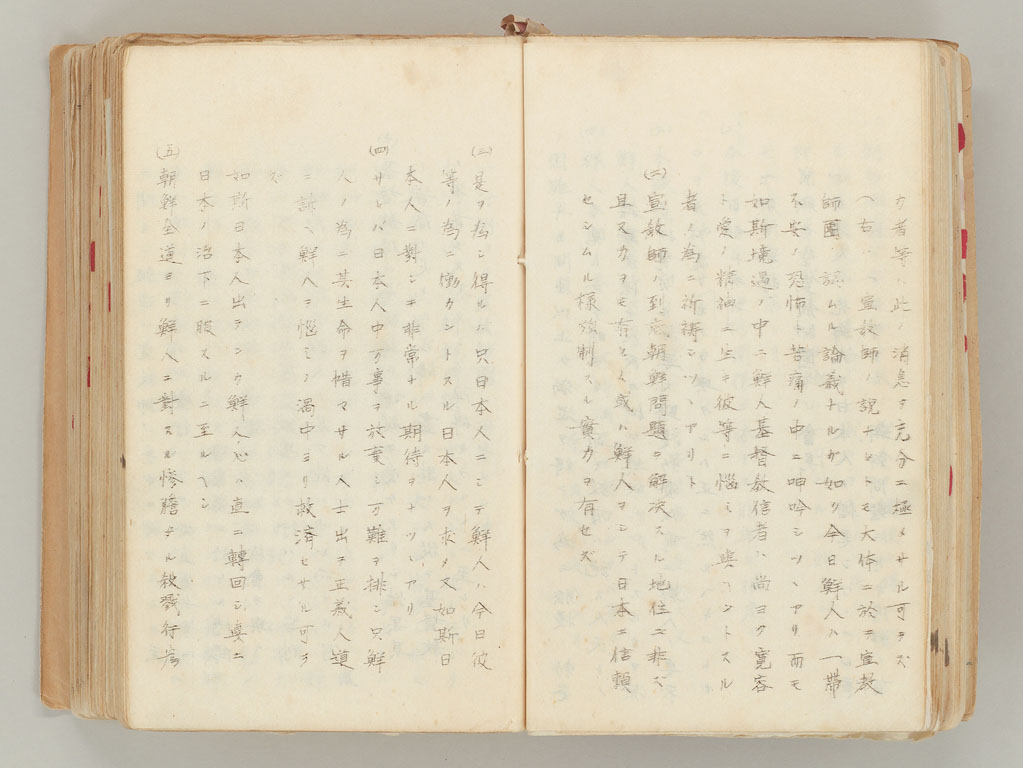 カ者等ハ此ノ消息ヲ充分ニ極メサル可ラズ
ヘ右ハ一宣教師ノ説ナレトモ大体ニ於テ宣教
師團ノ認ムル論義ナルカ如ク今日鮮人ハ一帯
不安ノ恐怖ト苦痛ノ中ニ呻吟シツヽアリ而モ
如斯境過ノ中ニ鮮人基督教信者ハ尚ヨク寛容
ト愛ノ精神ニ生キ彼等ニ惱ミヲ與ヘントスル
者ノ為ニ祈祷シツヽアリト
(二)宣教師ハ到底朝鮮問題ヲ解决スル地位ニ非ズ
且スカヲモ有セズ或ハ鮮人ヲシテ日本ニ信頼
セシムル様強制スル實力ヲ有セズ
(三)是ヲ為シ得ルハ只日本人ニシテ鮮人ハ今日彼
等ノ為ニ働カントスル日本人ヲ求メ又如斯日
本人ニ對シテ非常ナル期待ヲナシツヽアリ
(四)サレバ日本人中万事ヲ放棄シ万難ヲ排シ只鮮
人ノ為ニ其生命ヲ惜マサル人士出テ正義人道
ニ訴ヘ鮮人ヲ惱ミノ渦中ヨリ救済セサル可ラ
ズ
如斯日本人出テンカ鮮人ノ心ハ直ニ轉回シ真ニ
日本ノ治下ニ服スルニ至ルヘシ
(五)朝鮮全道ヨリ鮮人ニ對スル惨膽ナル殺戮行為